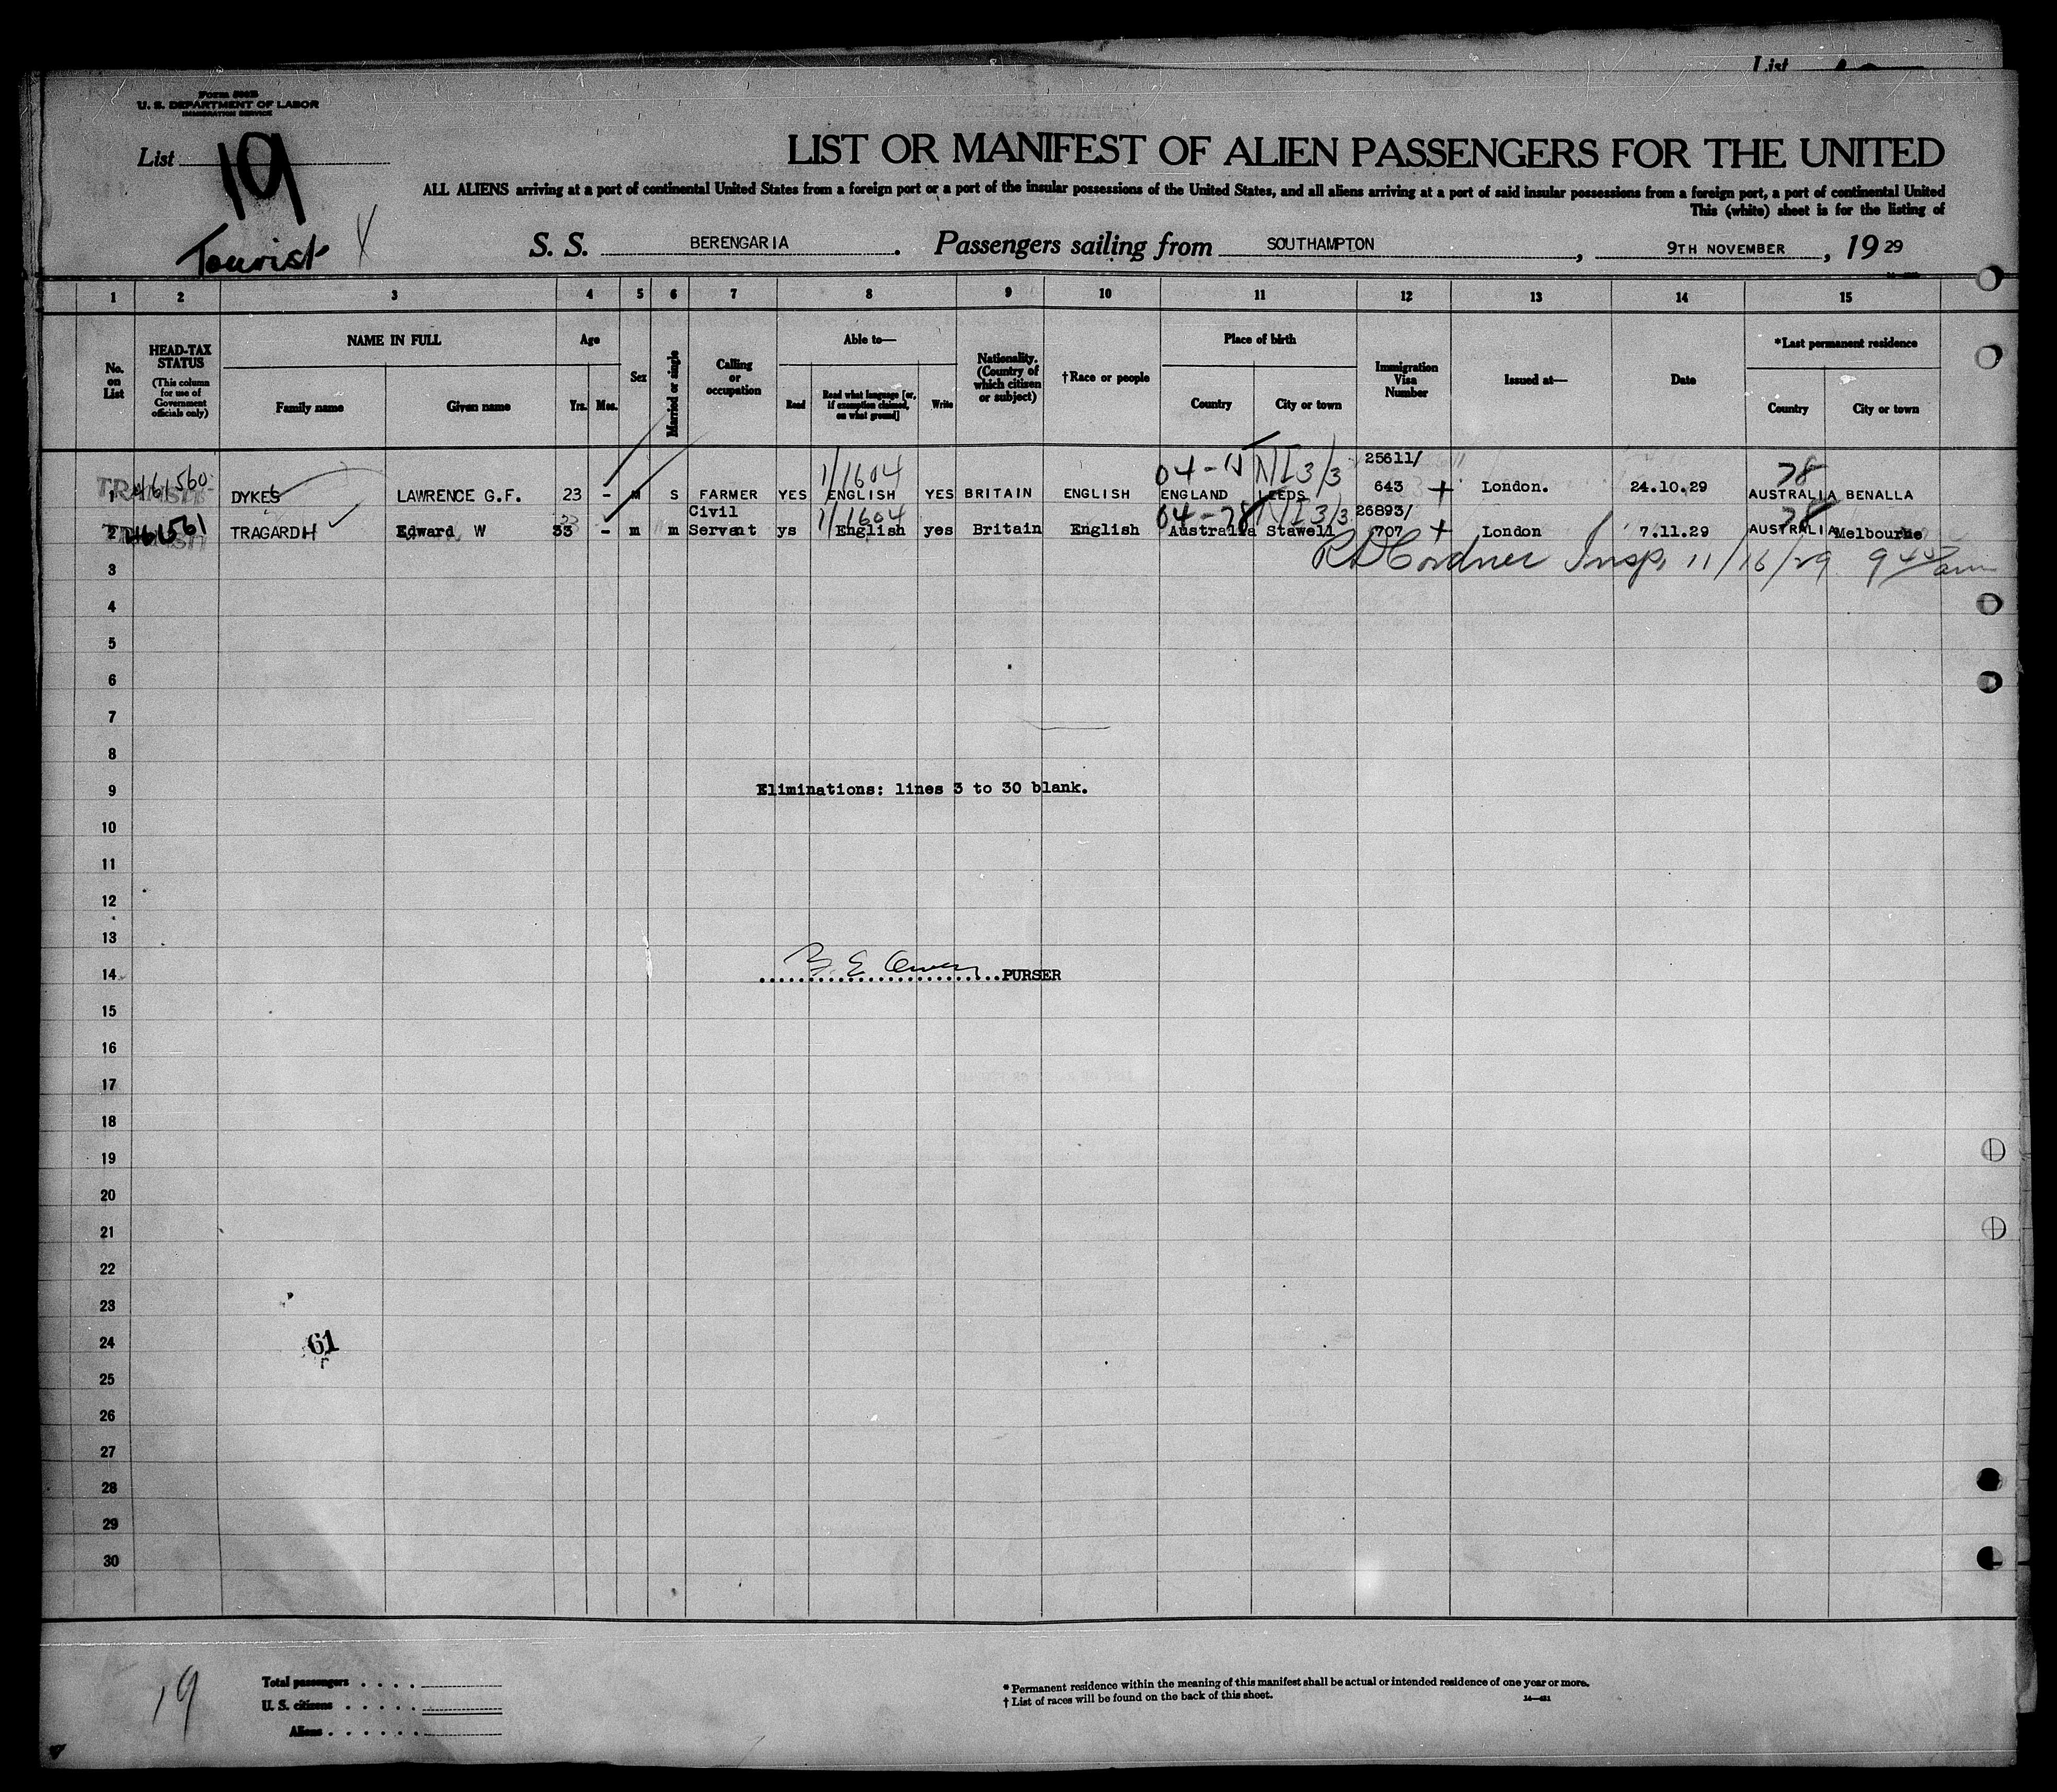 List
Form 500B
U. S. DEPARTMENT OF LABOR
IMMIGRATION SERVICE
List 19
LIST OR MANIFEST OF ALIEN PASSENGERS FOR THE UNITED
ALL ALIENS arriving at a port of continental United States from a foreign port or a port of the insular possessions of the United States, and all aliens arriving at a port of said insular possessions from a foreign port, a port of continental United
This (white) sheet is for the listing of
Tourist X
S. S. BERENGARIA. Passengers sailing from SOUTHAMPTON, 9TH NOVEMBER, 19 29
1 2 3 4 5 6 7 8 9 10 11 12 13 14 15
No. on List
HEAD-TAX STATUS
(This column for use of Government officials only)
NAME IN FULL
Family name Given name
Age
Yrs. Mos.
Sex
Married or single
Calling or occupation
Able to—
Read
Read what language [or, if exemption claimed, on what ground]
Write
Nationality. (Country of which citizen or subject)
†Race or people
Place of birth
Country City or town
Immigration Visa Number
Issued at—
Date
*Last permanent residence
Country City or town
461560 1/1604 04-N NI3/3 25611/ 78
1 TRANSIT DYKES LAWRENCE G.F. 23 - M S FARMER YES ENGLISH YES BRITAIN ENGLISH ENGLAND LEEDS 643 + London. 24.10.29 AUSTRALIA BENALLA
461561 Civil 1/1604 04-78 NI3/3 26893/ 78
2 TRANSIT TRAGARDH Edward W 33 - m m Servant ys English yes Britain English Australia Stawell 707 + London 7.11.29 AUSTRALIA Melbourne
3 Insp. 11/16/29 9 45 am
4
5
6
7
8
9 Eliminations: lines 3 to 30 blank.
10
11
12
13
14 B. E. Owen PURSER
15
16
17
18
19
20
21
22
23
24
61
25
26
27
28
29
30
19
Total passengers
U. S. citizens
Aliens
* Permanent residence within the meaning of this manifest shall be actual or intended residence of one year or more.
† List of races will be found on the back of this sheet. 14—481